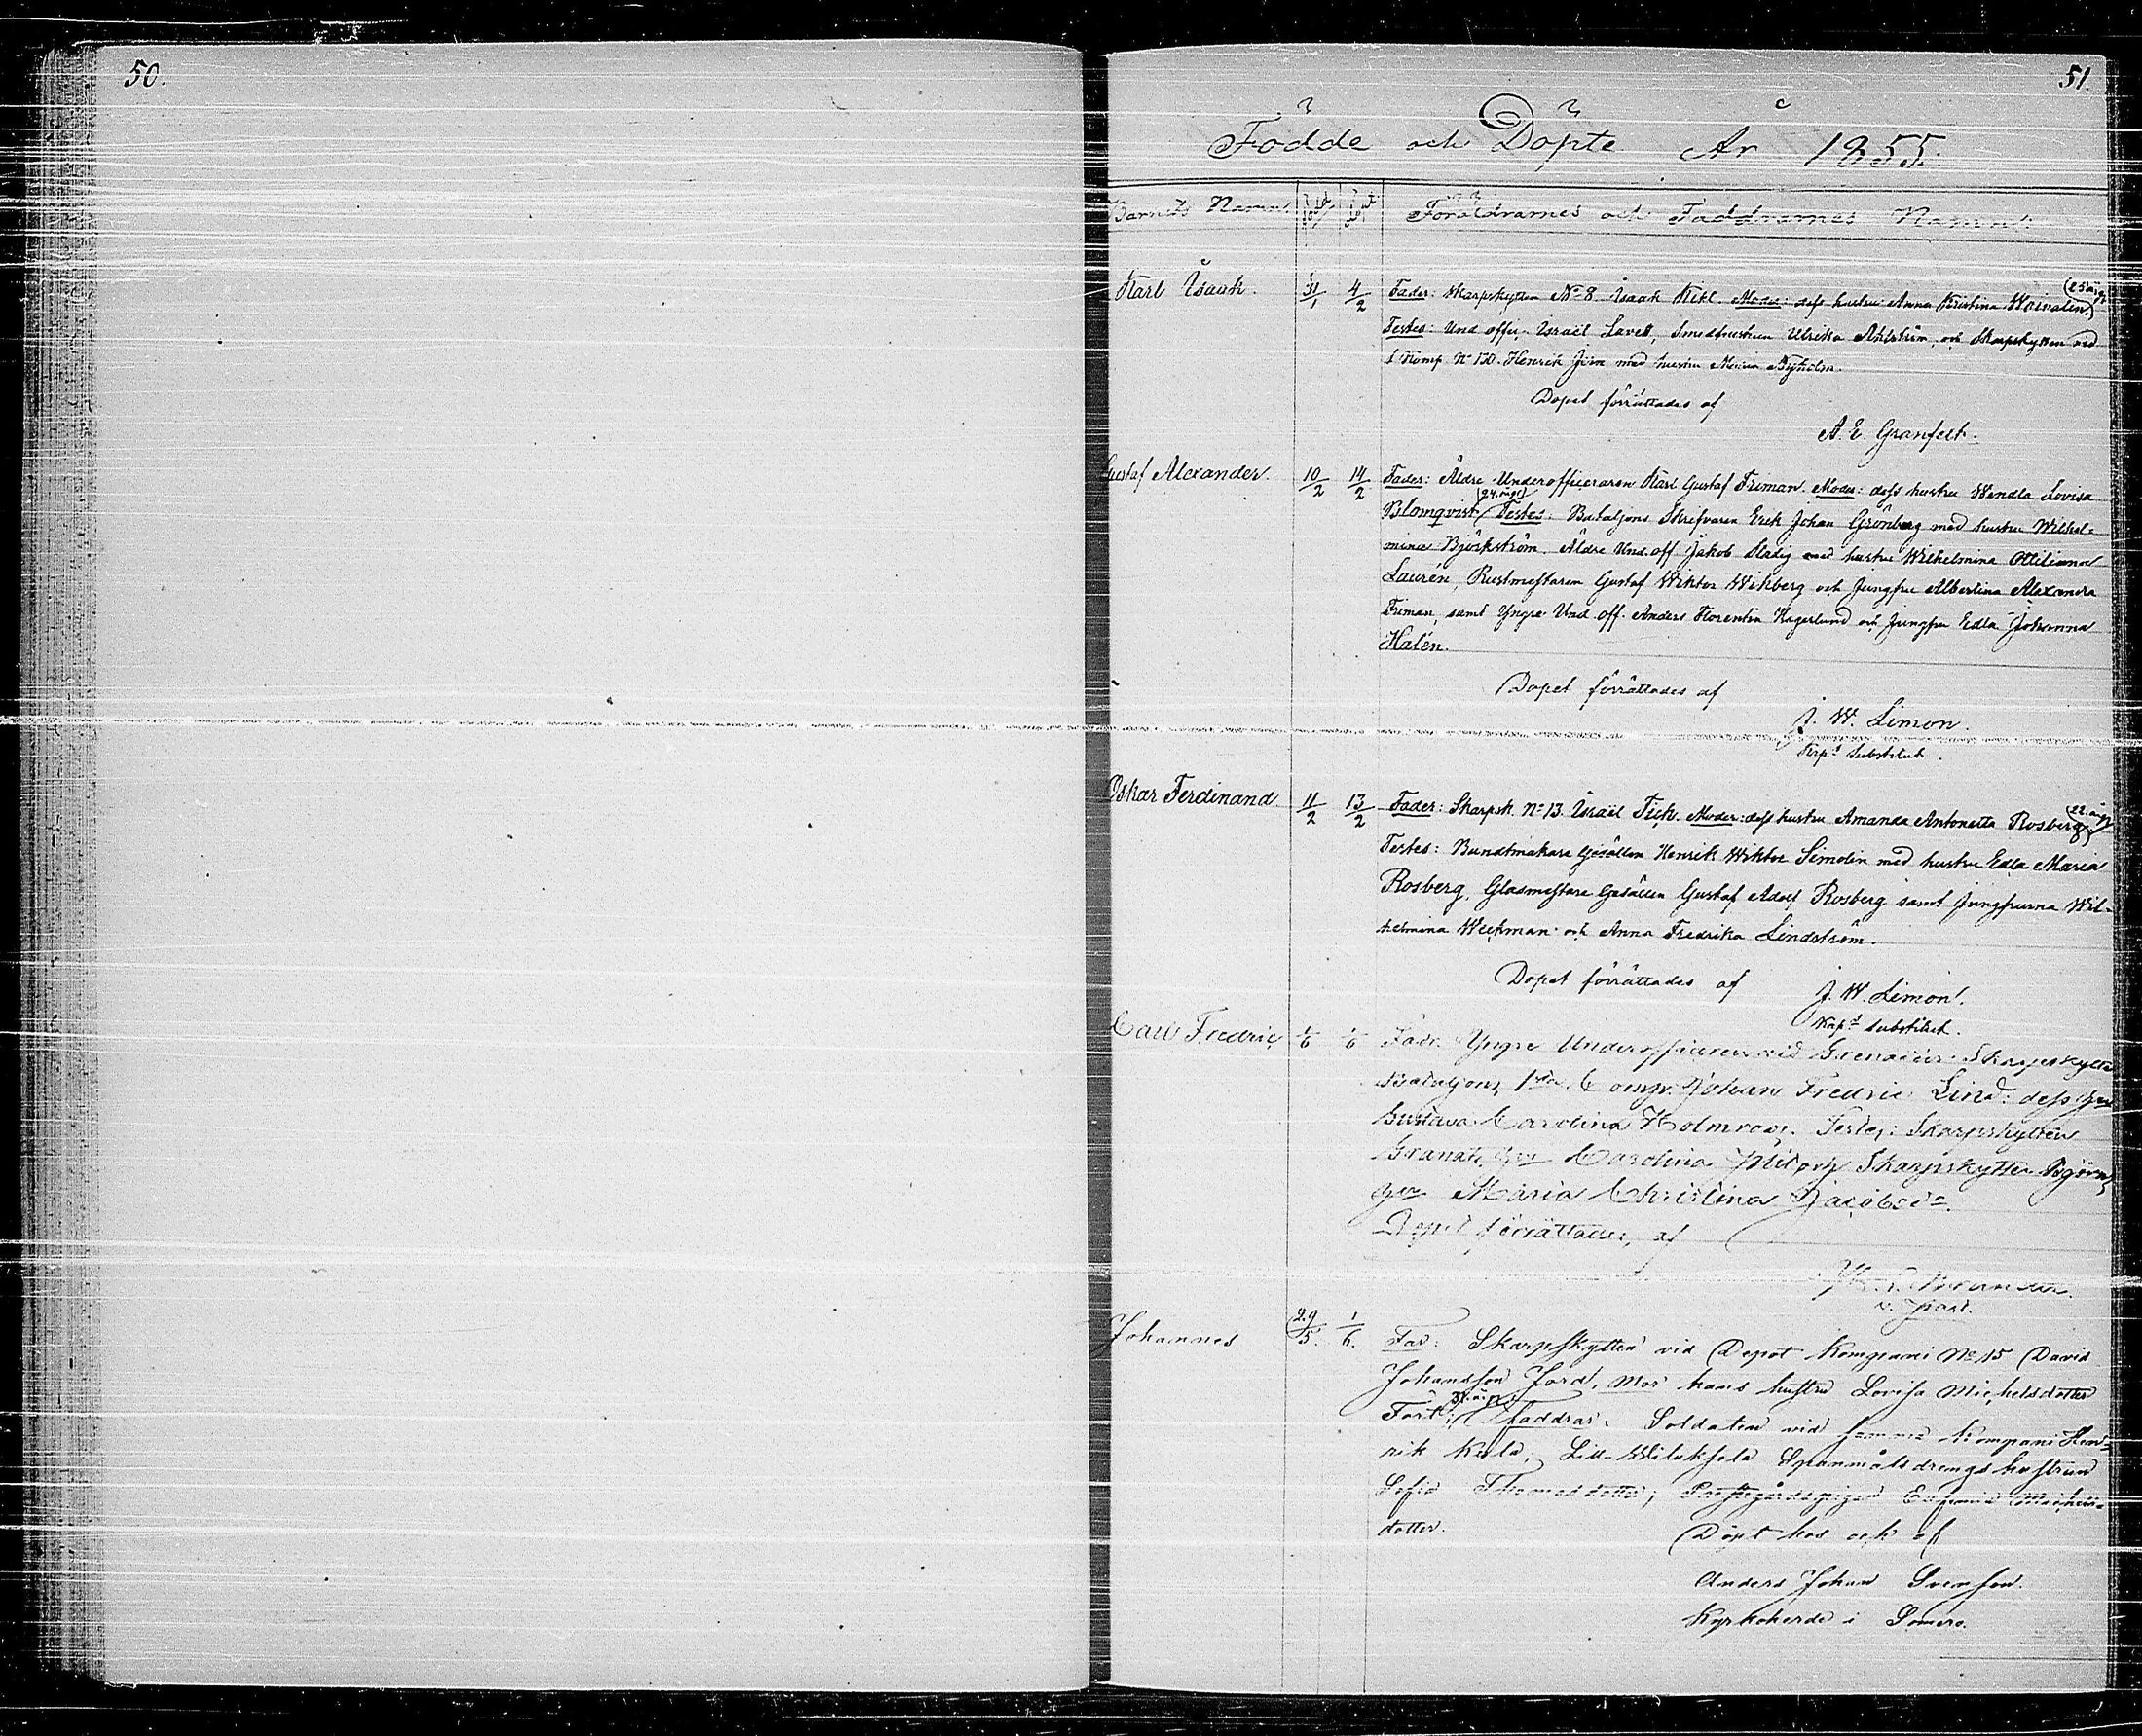 50.
51.
Födde och Döpte År 1855.
Barnets Namn. Född Döpt Föräldrarnes och Faddrarnes Namn
Karl Isaak. 31/1 4/2 Fader: Skarpskytten No 8 Isaak Kekl. Moder: dess hustru Anna Kristina (25 årig)
Testes: Und. offic. Israël Lavett, Smedhustrun Ulrika Ahlström, och Skarpskytten vid
1 Komp No 130. Henrik med hustru Maria Byholm.
Dopet förrättades af
A. E. Granfelt.
Gustaf Alexander. 10/2 14/2 Fader: Äldre Underofficeraren Karl Gustaf Friman. Moder: dess hustru Wendla Lovisa
Blomqvist (24 årig) Testes: Bataljons Skrifvaren Erik Johan Grönberg med hustru Wilhel-
mina Björkström. Äldre Und. off Jakob Sladig med hustru Wilhelmina Ottiliana
Laurén, Rustmestaren Gustaf Wiktor Wikberg och Jungfru Albertina Alexandra
Friman, samt Yngre Und. off. Anders Florentin Hagerlund och Jungfru Edla Johanna
Halén.
Dopet förrättades af
J. W. Limon.
Substitut.
Oskar Ferdinand 11/2 13/2 Fader: Skarpsk. No 13. Israël Tick. Moder: dess hustru Amanda Antonetta Rosberg (22 årig)
Testes: Buntmakare Gesällen Henrik Wiktor Simolin med hustru Edla Maria
Rosberg, Glasmestare Gesällen Gustaf Adolf Rosberg samt Jungfrurna Wil-
helmina Weckman och Anna Fredrika Lindström.
Dopet förrättades af J. W. Limon.
Kap. Substitut.
Carl Fredric Fadr. Yngre Underofficeren vid Grenadier Skarpskytte
Bataljons, 1sta Comp. Johan Fredric Lind: dess
Gustava Carolina Testes: Skarpskytten
Granat, Carolina och Skarpskytten Björn,
Maria Christina
Dopet förrättades af
v. Past.
Johannes 29/5. 1/6. Far: Skarpskytten vid Depot Kompani No 15 David
Johansson Jord, Mor hans hustru Lovisa Michelsdotter
31 årig Faddrar: Soldaten vid samma Kompani Hen-
rik Kula, Spanmålsdrengshustrun
Sofia Thomasdotter, Michels-
dotter. Döpt hos och af
Anders Johan Svensson.
Kyrkoherde i Somero.